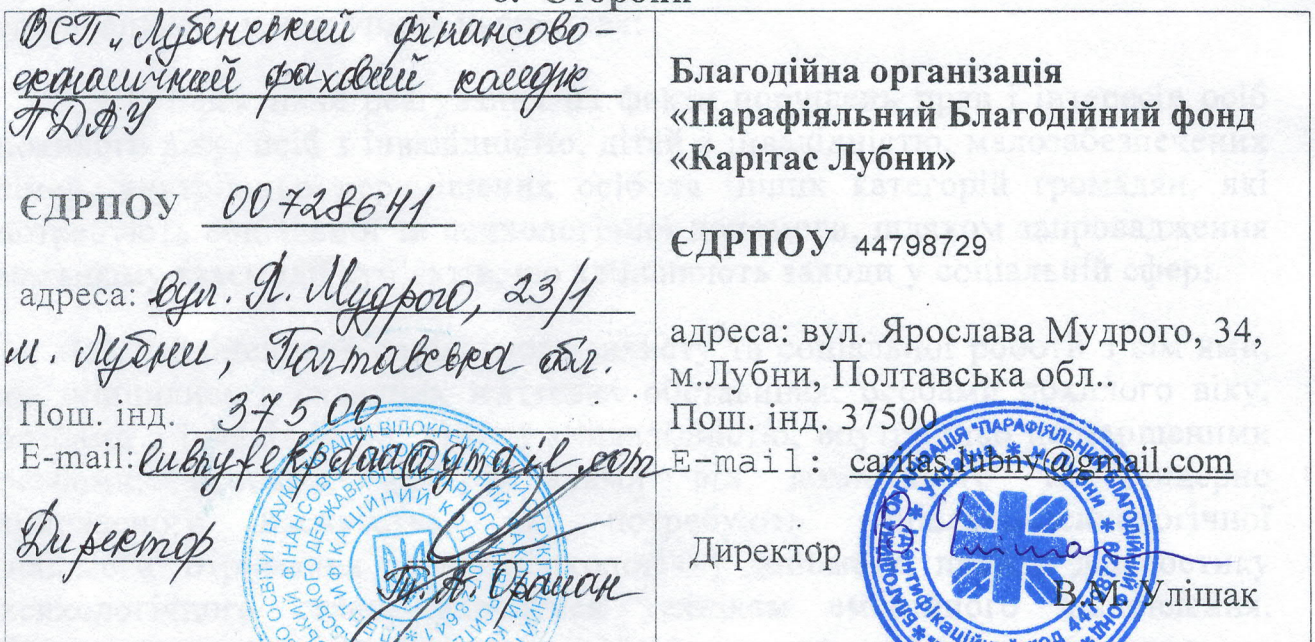 Сторони
ВСП „Лубенський фінансово-
економічний фаховий коледж
ПДАУ
ЄДРПОУ 00728641
адреса: вул. Я. Мудрого, 23/1
м. Лубни, Полтавська обл.
Пош. інд. 37500
E-mail: lubnyfekpdaa@gmail.com
Директор
Благодійна організація
«Парафіяльний Благодійний фонд
«Карітас Лубни»
ЄДРПОУ 44798729
адреса: вул. Ярослава Мудрого, 34,
м.Лубни, Полтавська обл..
Пош. інд. 37500
E-mail: caritas.lubny@gmail.com
Директор
В.М. Улішак